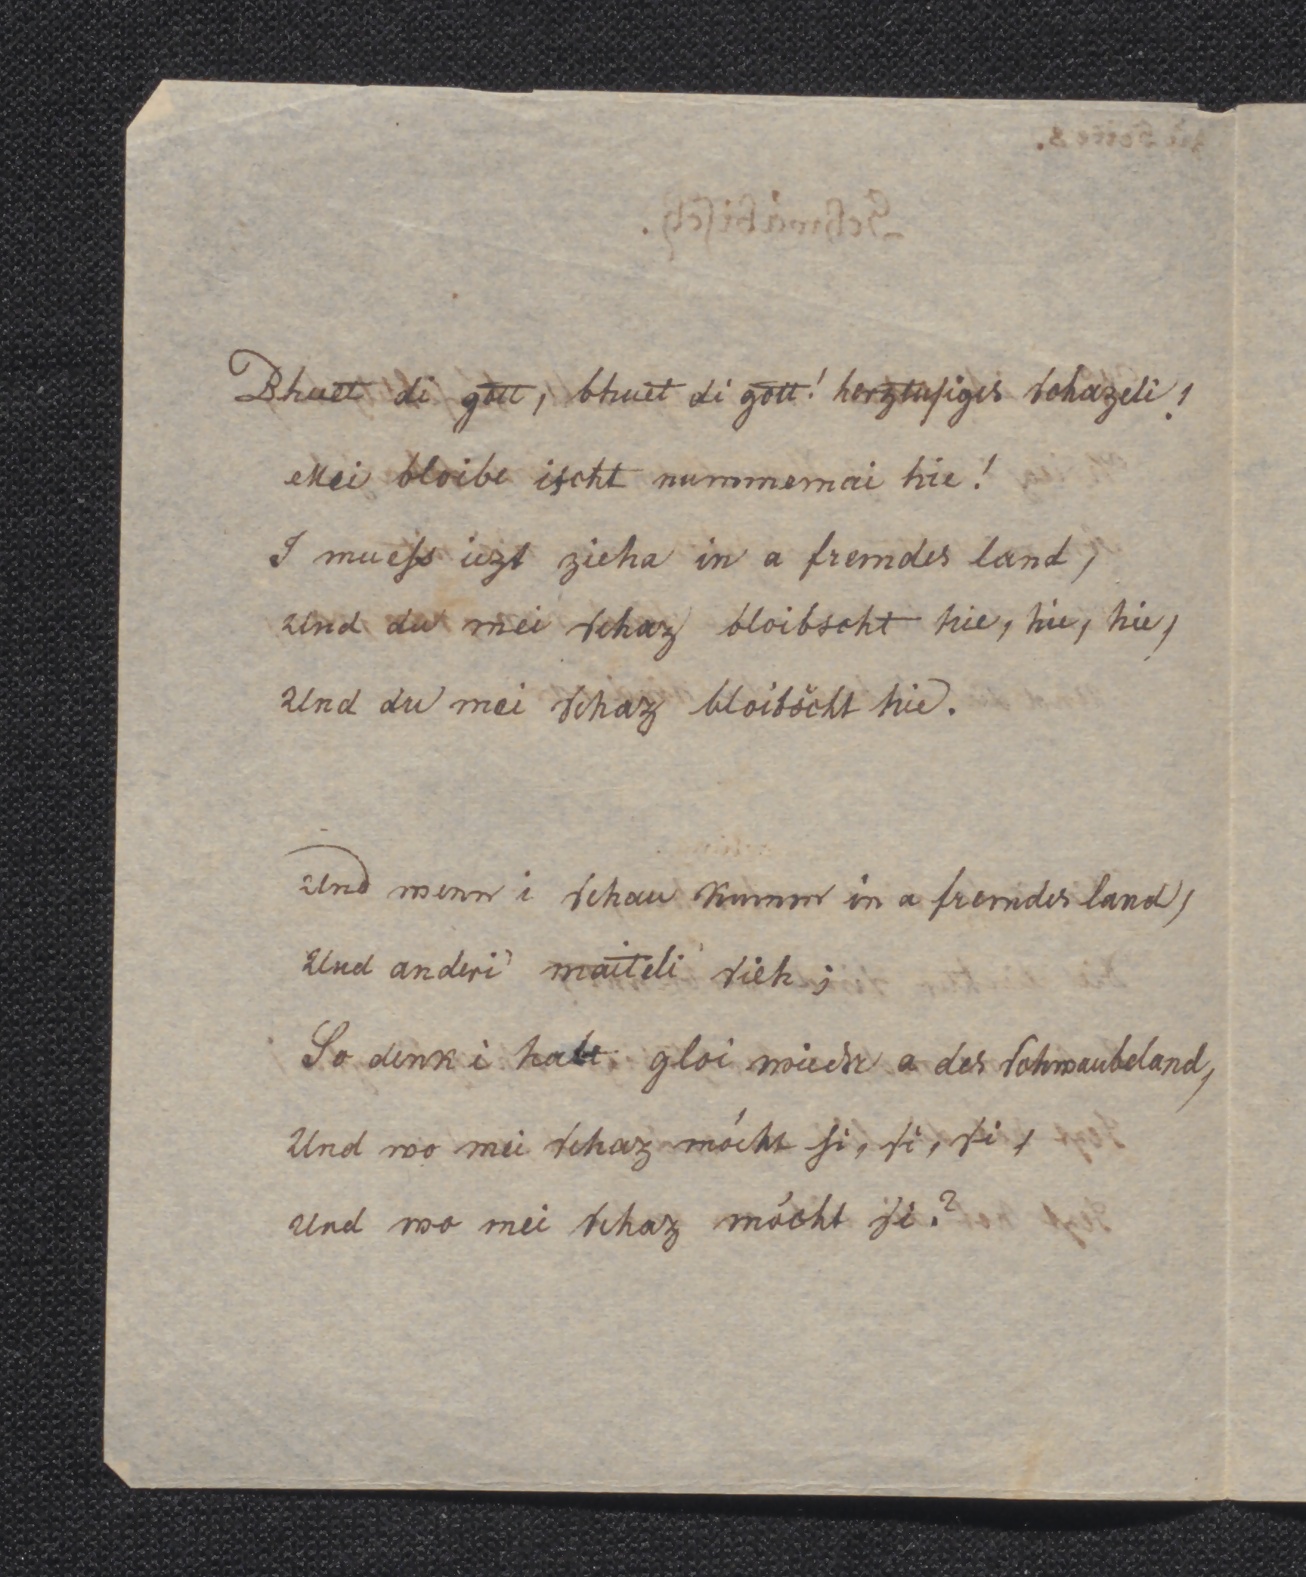 Bhuet di gott, bhuet di gott! herztusiges schazeli!
Mei bloibe ischt nummemai hie!
I muess iezt zieha in a fremdes land,
Und du mei schaz bloibscht hie, hie, hie,
Und du mei schaz bloibscht hie.
Und wenn i schau kumm in a fremdes land,
Und anderi maiteli sieh;
So denk i halt. gloi wieder a des schwaubeland,
Und wo mei schaz möcht si, si, si,
Und wo mei schaz möcht si.?